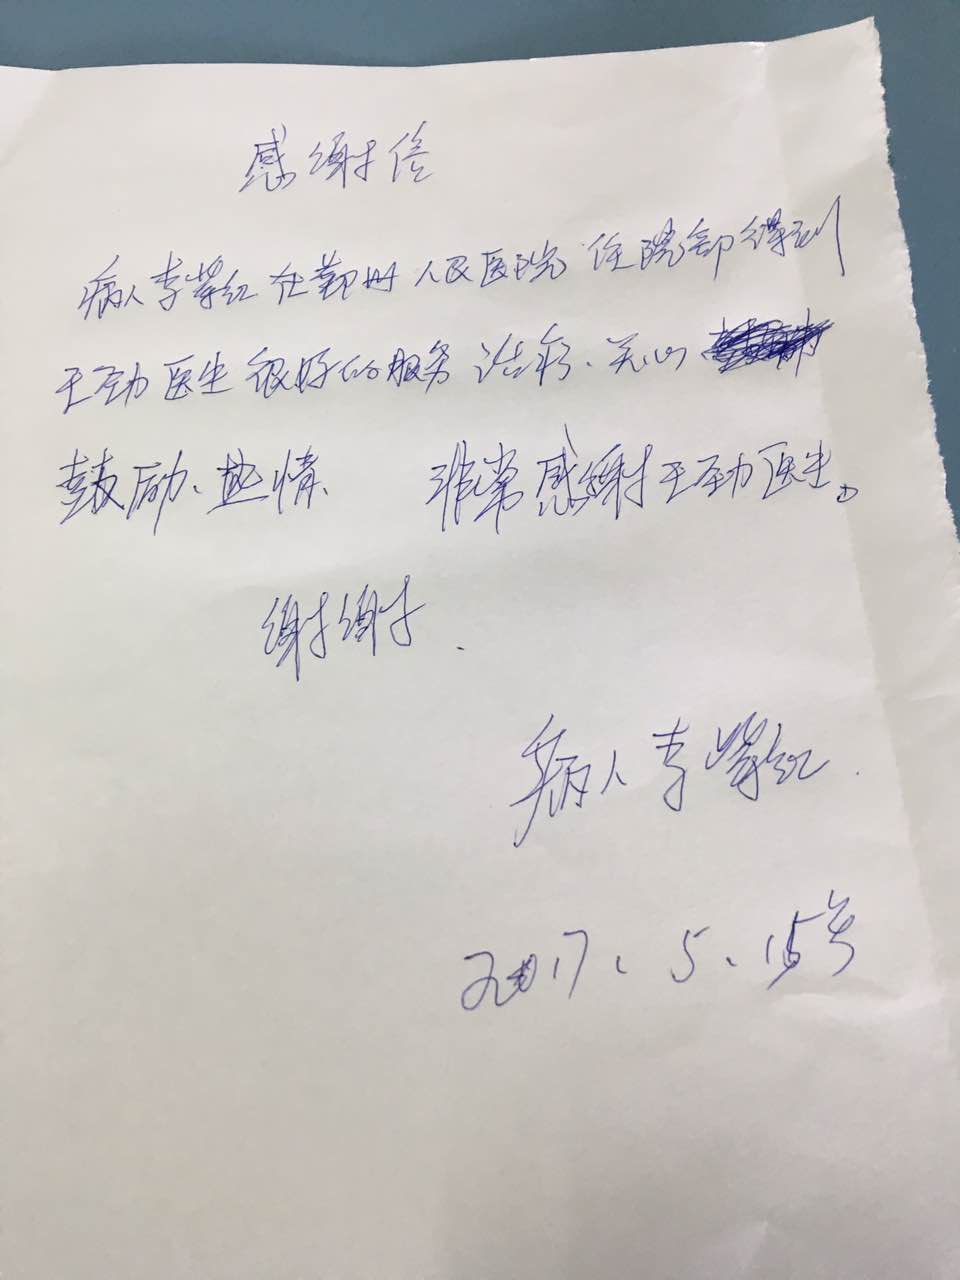 感谢信
病人李紫红在鄞州人民医院住院部得到
王劲医生很好的服务治疗、关心
鼓励、热情、 非常感谢王劲医生。
谢谢.
病人李紫红.
2017、5、15号